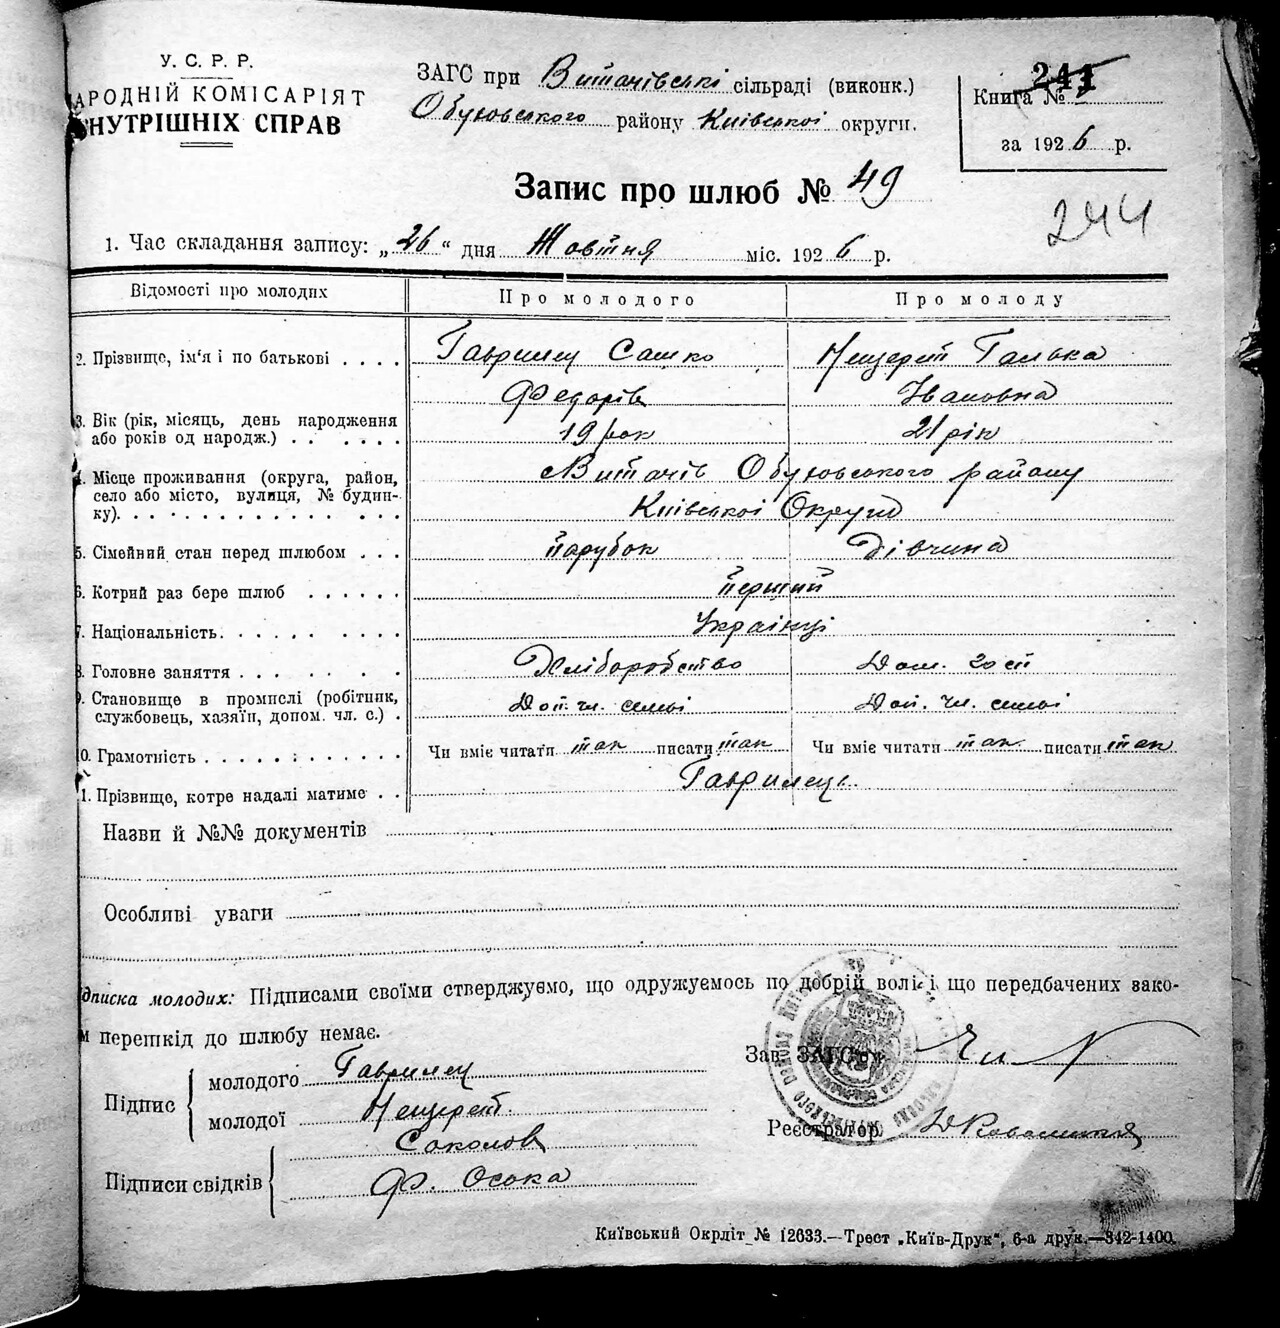 У. С. Р. Р.
АРОДНІЙ КОМІСАРІЯТ
НУТРІШНІХ СПРАВ
ЗАГС при Витачівські сільраді (виконк.)
Обуховського району Київської округи.
241
Книга №
за 1926 р.
Запис про шлюб № 49
244
1. Час складання запису: „26“ дня Жовтня міс. 1926 р.
Відомості про молодих Про молодого Про молоду
2. Прізвище, ім'я і по батькові Гаврилец Сашко Мещерет Галька
Федорів Івановна
3. Вік (рік, місяць, день народження
або років од народж.) 19 рок 21 рік
4. Місце проживання (округа, район, Витачів Обуховського району
село або місто, вулиця, № будин-
ку). Київської Округи
5. Сімейний стан перед шлюбом парубок дівчина
6. Котрий раз бере шлюб перший
7. Національність. Українці
8. Головне заняття Хліборобство Дом. госп
9. Становище в промислі (робітник,
службовець, хазяїн, допом. чл. с.) Доп. чл. семьі Доп. чл. семьі
10. Грамотність Чи вміє читати так писати так Чи вміє читати так писати так
11. Прізвище, котре надалі матиме Гаврилець
Назви й №№ документів
Особливі уваги
дписка молодих: Підписами своїми стверджуємо, що одружуємось по добрій волі і що передбачених зако-
м перешкід до шлюбу немає.
Зав. ЗАГС'ом
Підпис молодого Гаврилец
молодої Мещерет.
Реєстратор
Підписи свідків Соколов
Ф. Осока
Київський Окрліт № 12633.—Трест „Київ-Друк“, 6-а друк.—342-1400.